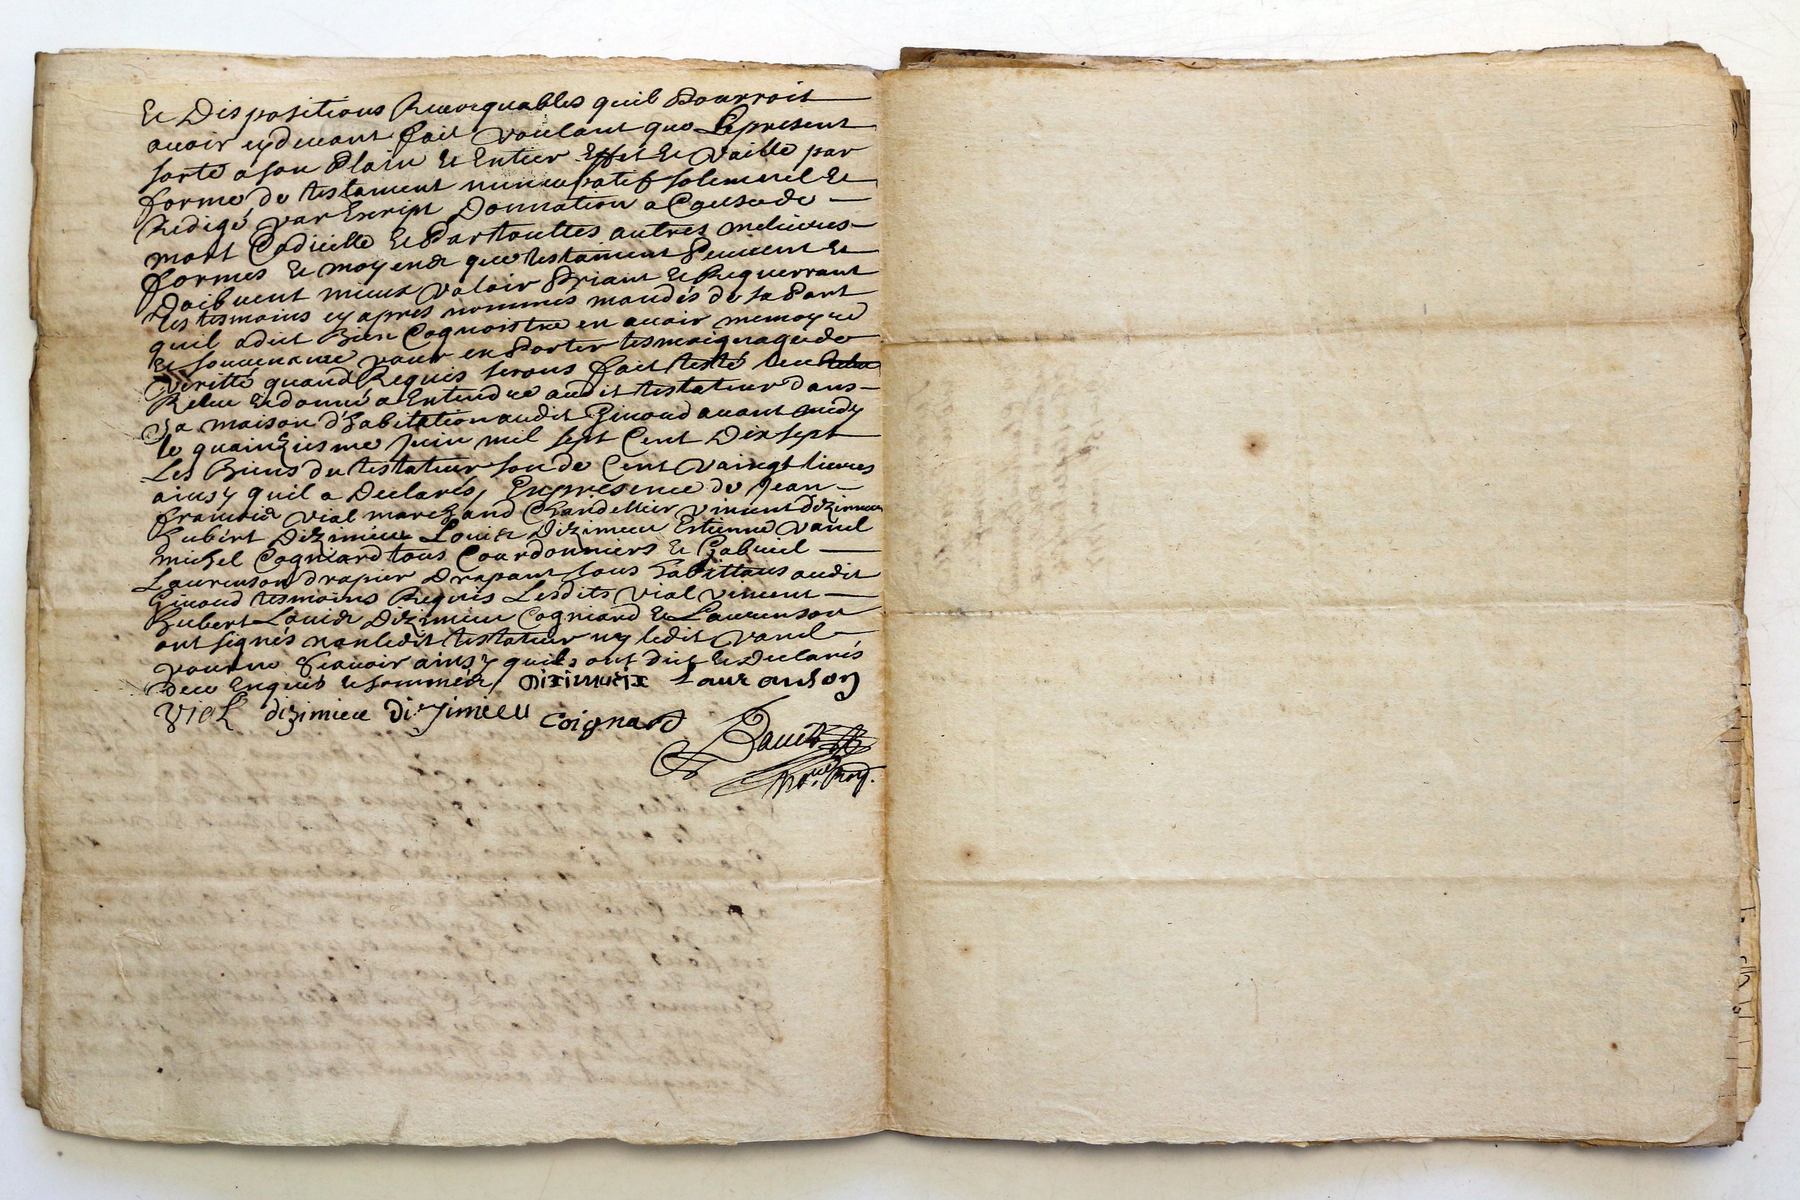 Et Dispositions Revocquables quil Pourroit
avoir cydevant fait voulant que Le present
sorte a son Plain Et Entier Effet Et Vaille par
forme de testament nuncupatif solemnel Et
Redigé par Escript Donnation a Cause de
mort Codicille Et Par touttes autres melieures
formes Et moyens que testament Peuvent Et
Doibvent mieux Valoir Priant Et Requerrant
les tesmoins cy apres nommés mandés de sa Part
quil a dit Bien Cognoistre en avoir memoyre
Et souvenance pour en Porter tesmoignage de
Veritté quand Requis serons fait testé leu
Releu Et donné a Entendre audit testateur dans
Sa maison d'habitation audit Givord avant midy
le quainziesme Juin mil sept Cent Dix sept
Les Biens du testateur son de Cent vaingt livres
ainsy quil a Declarés, En presence de Jean
francois Vial marchand Chandellier vincent dizimieu
hubert Dizimieu Louis Dizimieu Estienne Vanel
michel Cogniard tous Courdonniers Et Gabriel
Laurenson drapier Drapant tous habittans audit
Givord tesmoins Requis Lesdits Vial vincent
hubert Louis Dizimieu Cogniard Et Laurenson
ont signés non ledit testateur ny ledit Vanel
pour ne sçavoir ainsy quils ont dit Et Declarés
de ce Enquis Et sommés / Diximieix Lauranson
Vial dizimieu Dizimieu Coignard